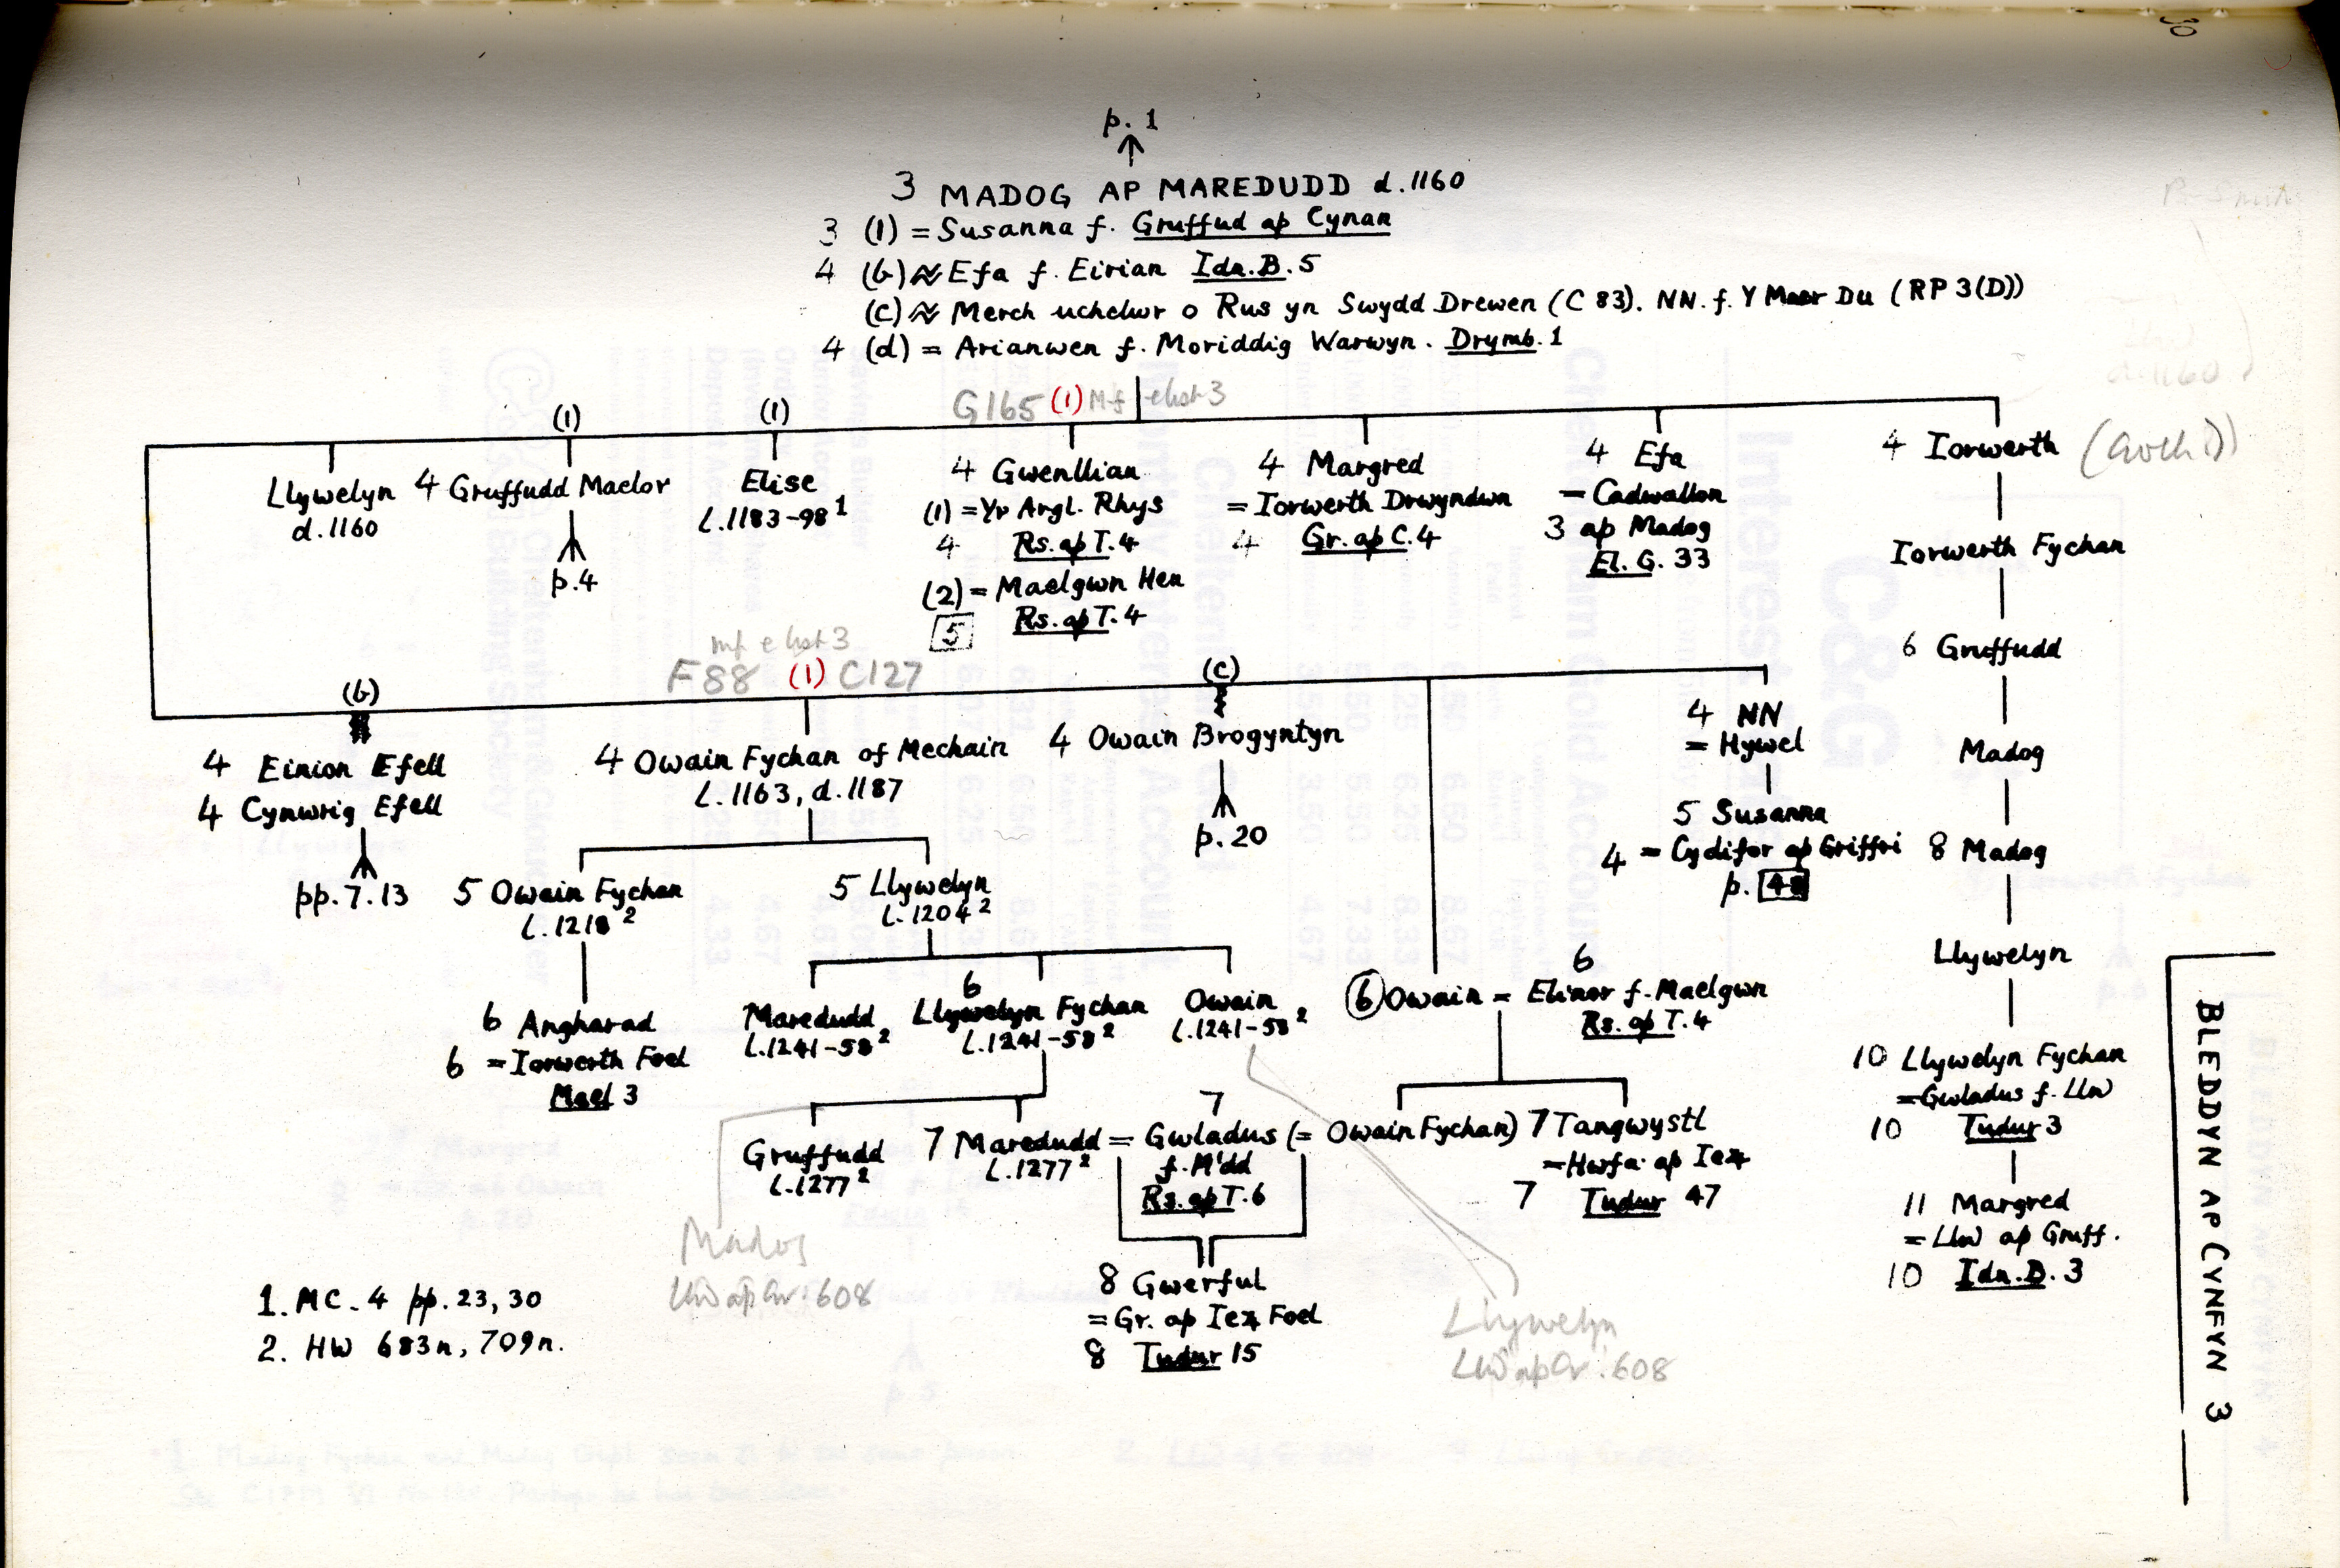 30
p. 1
3 MADOG AP MAREDUDD d.1160
3 (1) = Susanna f. Gruffud ap Cynan
4 (b) ≈ Efa f. Eirian Idn.B.5
(c) ≈ Merch uchelwr o Rus yn Swydd Drewen (C 83). NN. f. Y Maer Du (RP 3(D))
4 (d) = Arianwen f. Moriddig Warwyn. Drymb. 1
G165 (1) Mf chst 3
(1)
(1)
Llywelyn
d.1160
4 Gruffudd Maelor
p.4
Elise
L.1183-98 1
4 Gwenllian
(1) = Yr Argl. Rhys
4 Rs. ap T. 4
(2) = Maelgwn Hen
5 Rs. ap T. 4
4 Margred
= Iorwerth Drwyndwn
4 Gr. ap C. 4
4 Efa
= Cadwallon
3 ap Madog
El. G. 33
4 Iorwerth (Goch)
Iorwerth Fychan
6 Gruffudd
Madog
8 Madog
Llywelyn
10 Llywelyn Fychan
= Gwladus f. Llw
10 Tudur 3
11 Margred
= Llw ap Gruff.
10 Idn. B. 3
(b)
4 Einion Efell
4 Cynwrig Efell
pp. 7. 13
mf chst 3
F88 (1) C127
4 Owain Fychan of Mechain
L. 1163, d. 1187
5 Owain Fychan
L. 1218 2
6 Angharad
6 = Iorwerth Foel
Mael 3
5 Llywelyn
L. 1204 2
Maredudd
L.1241-58 2
6
Llywelyn Fychan
L.1241-58 2
Owain
L.1241-58 2
Gruffudd
L.1277 2
7 Maredudd = Gwladus (= Owain Fychan)
L.1277 2
7
f. M'dd
Rs. ap T. 6
8 Gwerful
= Gr. ap Iez Foel
8 Tudur 15
(c)
4 Owain Brogyntyn
p. 20
6 Owain = Elinor f. Maelgwn
6
Rs. ap T. 4
7 Tangwystl
= Hwfa ap Iez
7 Tudur 47
4 NN
= Hywel
5 Susanna
4 = Cydifor ap Griffri
p. 48
Madog
Llw ap Gr: 608
Llywelyn
Llw ap Gr: 608
1. MC. 4 pp. 23, 30
2. HW 683n, 709n.
BLEDDYN AP CYNFYN 3